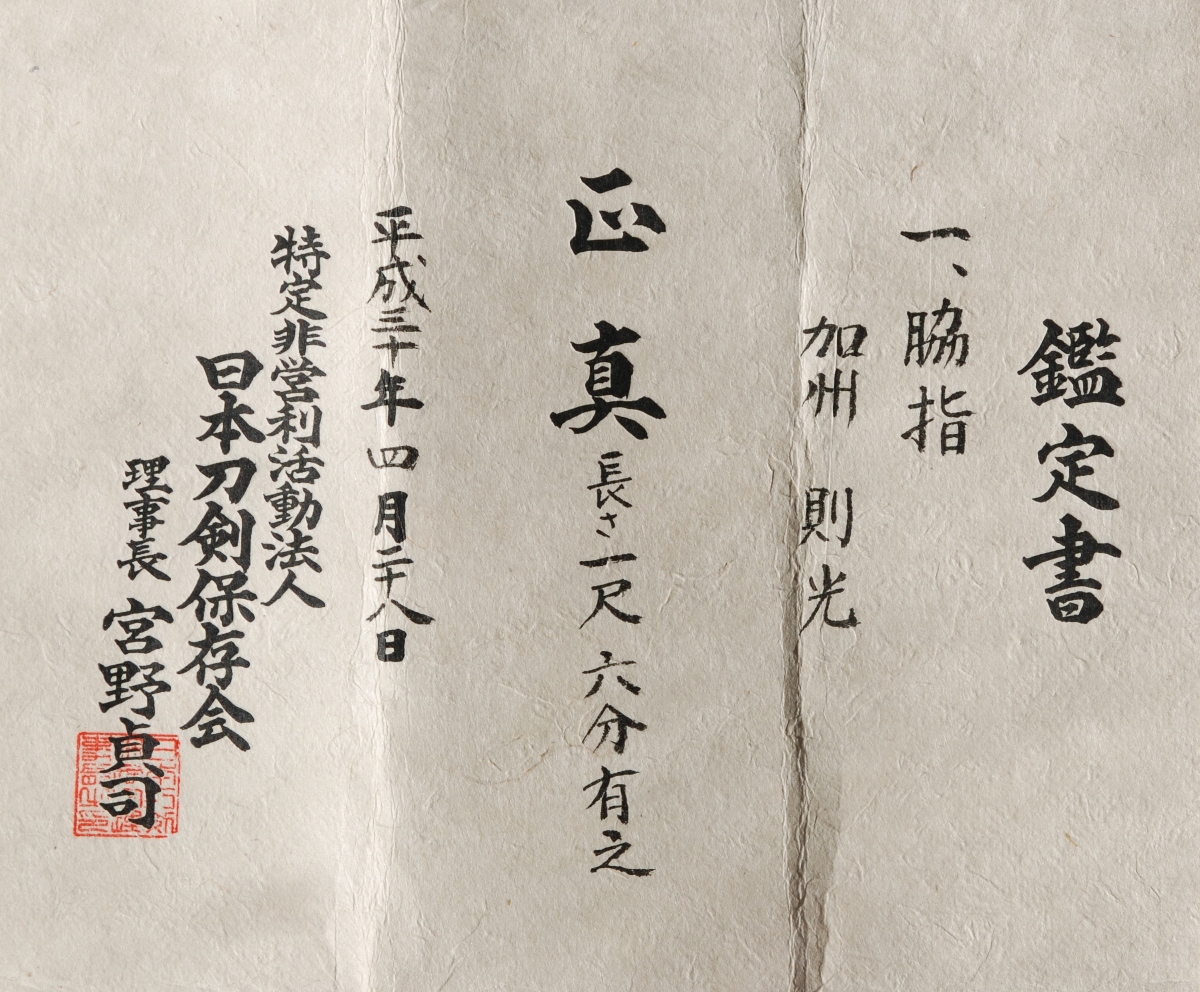 鑑定書
一、脇指
加州 則光
正真 長さ一尺六分有之
平成三十年四月二十八日
特定非営利活動法人
日本刀剣保存会
理事長 宮野貞司